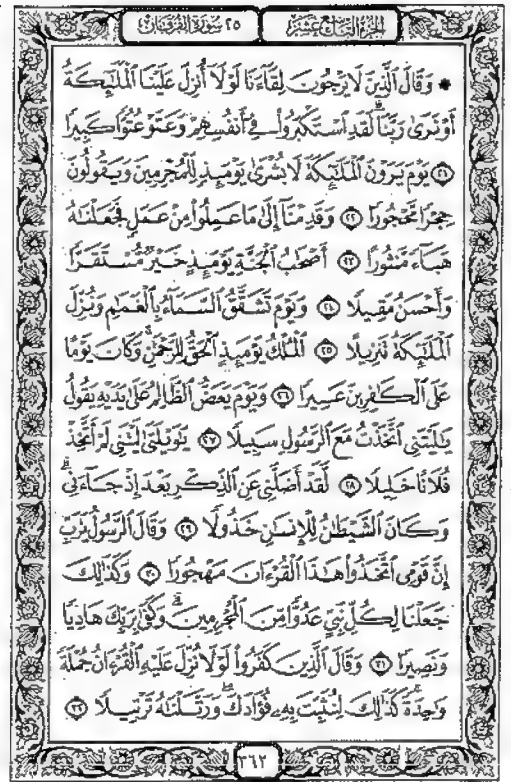 الجزء التاسع عشر
٢٥ سورة الفرقان
۞ وَقَالَ ٱلَّذِينَ لَا يَرْجُونَ لِقَآءَنَا لَوْلَآ أُنزِلَ عَلَيْنَا ٱلْمَلَٰٓئِكَةُ
أَوْ نَرَىٰ رَبَّنَا ۗ لَقَدِ ٱسْتَكْبَرُوا۟ فِىٓ أَنفُسِهِمْ وَعَتَوْ عُتُوًّا كَبِيرًا
٢١ يَوْمَ يَرَوْنَ ٱلْمَلَٰٓئِكَةَ لَا بُشْرَىٰ يَوْمَئِذٍ لِّلْمُجْرِمِينَ وَيَقُولُونَ
حِجْرًا مَّحْجُورًا ٢٢ وَقَدِمْنَآ إِلَىٰ مَا عَمِلُوا۟ مِنْ عَمَلٍ فَجَعَلْنَٰهُ
هَبَآءً مَّنثُورًا ٢٣ أَصْحَٰبُ ٱلْجَنَّةِ يَوْمَئِذٍ خَيْرٌ مُّسْتَقَرًّا
وَأَحْسَنُ مَقِيلًا ٢٤ وَيَوْمَ تَشَقَّقُ ٱلسَّمَآءُ بِٱلْغَمَٰمِ وَنُزِّلَ
ٱلْمَلَٰٓئِكَةُ تَنزِيلًا ٢٥ ٱلْمُلْكُ يَوْمَئِذٍ ٱلْحَقُّ لِلرَّحْمَٰنِ ۚ وَكَانَ يَوْمًا
عَلَى ٱلْكَٰفِرِينَ عَسِيرًا ٢٦ وَيَوْمَ يَعَضُّ ٱلظَّالِمُ عَلَىٰ يَدَيْهِ يَقُولُ
يَٰلَيْتَنِى ٱتَّخَذْتُ مَعَ ٱلرَّسُولِ سَبِيلًا ٢٧ يَٰوَيْلَتَىٰ لَيْتَنِى لَمْ أَتَّخِذْ
فُلَانًا خَلِيلًا ٢٨ لَّقَدْ أَضَلَّنِى عَنِ ٱلذِّكْرِ بَعْدَ إِذْ جَآءَنِى ۗ
وَكَانَ ٱلشَّيْطَٰنُ لِلْإِنسَٰنِ خَذُولًا ٢٩ وَقَالَ ٱلرَّسُولُ يَٰرَبِّ
إِنَّ قَوْمِى ٱتَّخَذُوا۟ هَٰذَا ٱلْقُرْءَانَ مَهْجُورًا ٣٠ وَكَذَٰلِكَ
جَعَلْنَا لِكُلِّ نَبِىٍّ عَدُوًّا مِّنَ ٱلْمُجْرِمِينَ ۗ وَكَفَىٰ بِرَبِّكَ هَادِيًا
وَنَصِيرًا ٣١ وَقَالَ ٱلَّذِينَ كَفَرُوا۟ لَوْلَا نُزِّلَ عَلَيْهِ ٱلْقُرْءَانُ جُمْلَةً
وَٰحِدَةً ۚ كَذَٰلِكَ لِنُثَبِّتَ بِهِۦ فُؤَادَكَ ۖ وَرَتَّلْنَٰهُ تَرْتِيلًا ٣٢
٣٦٢